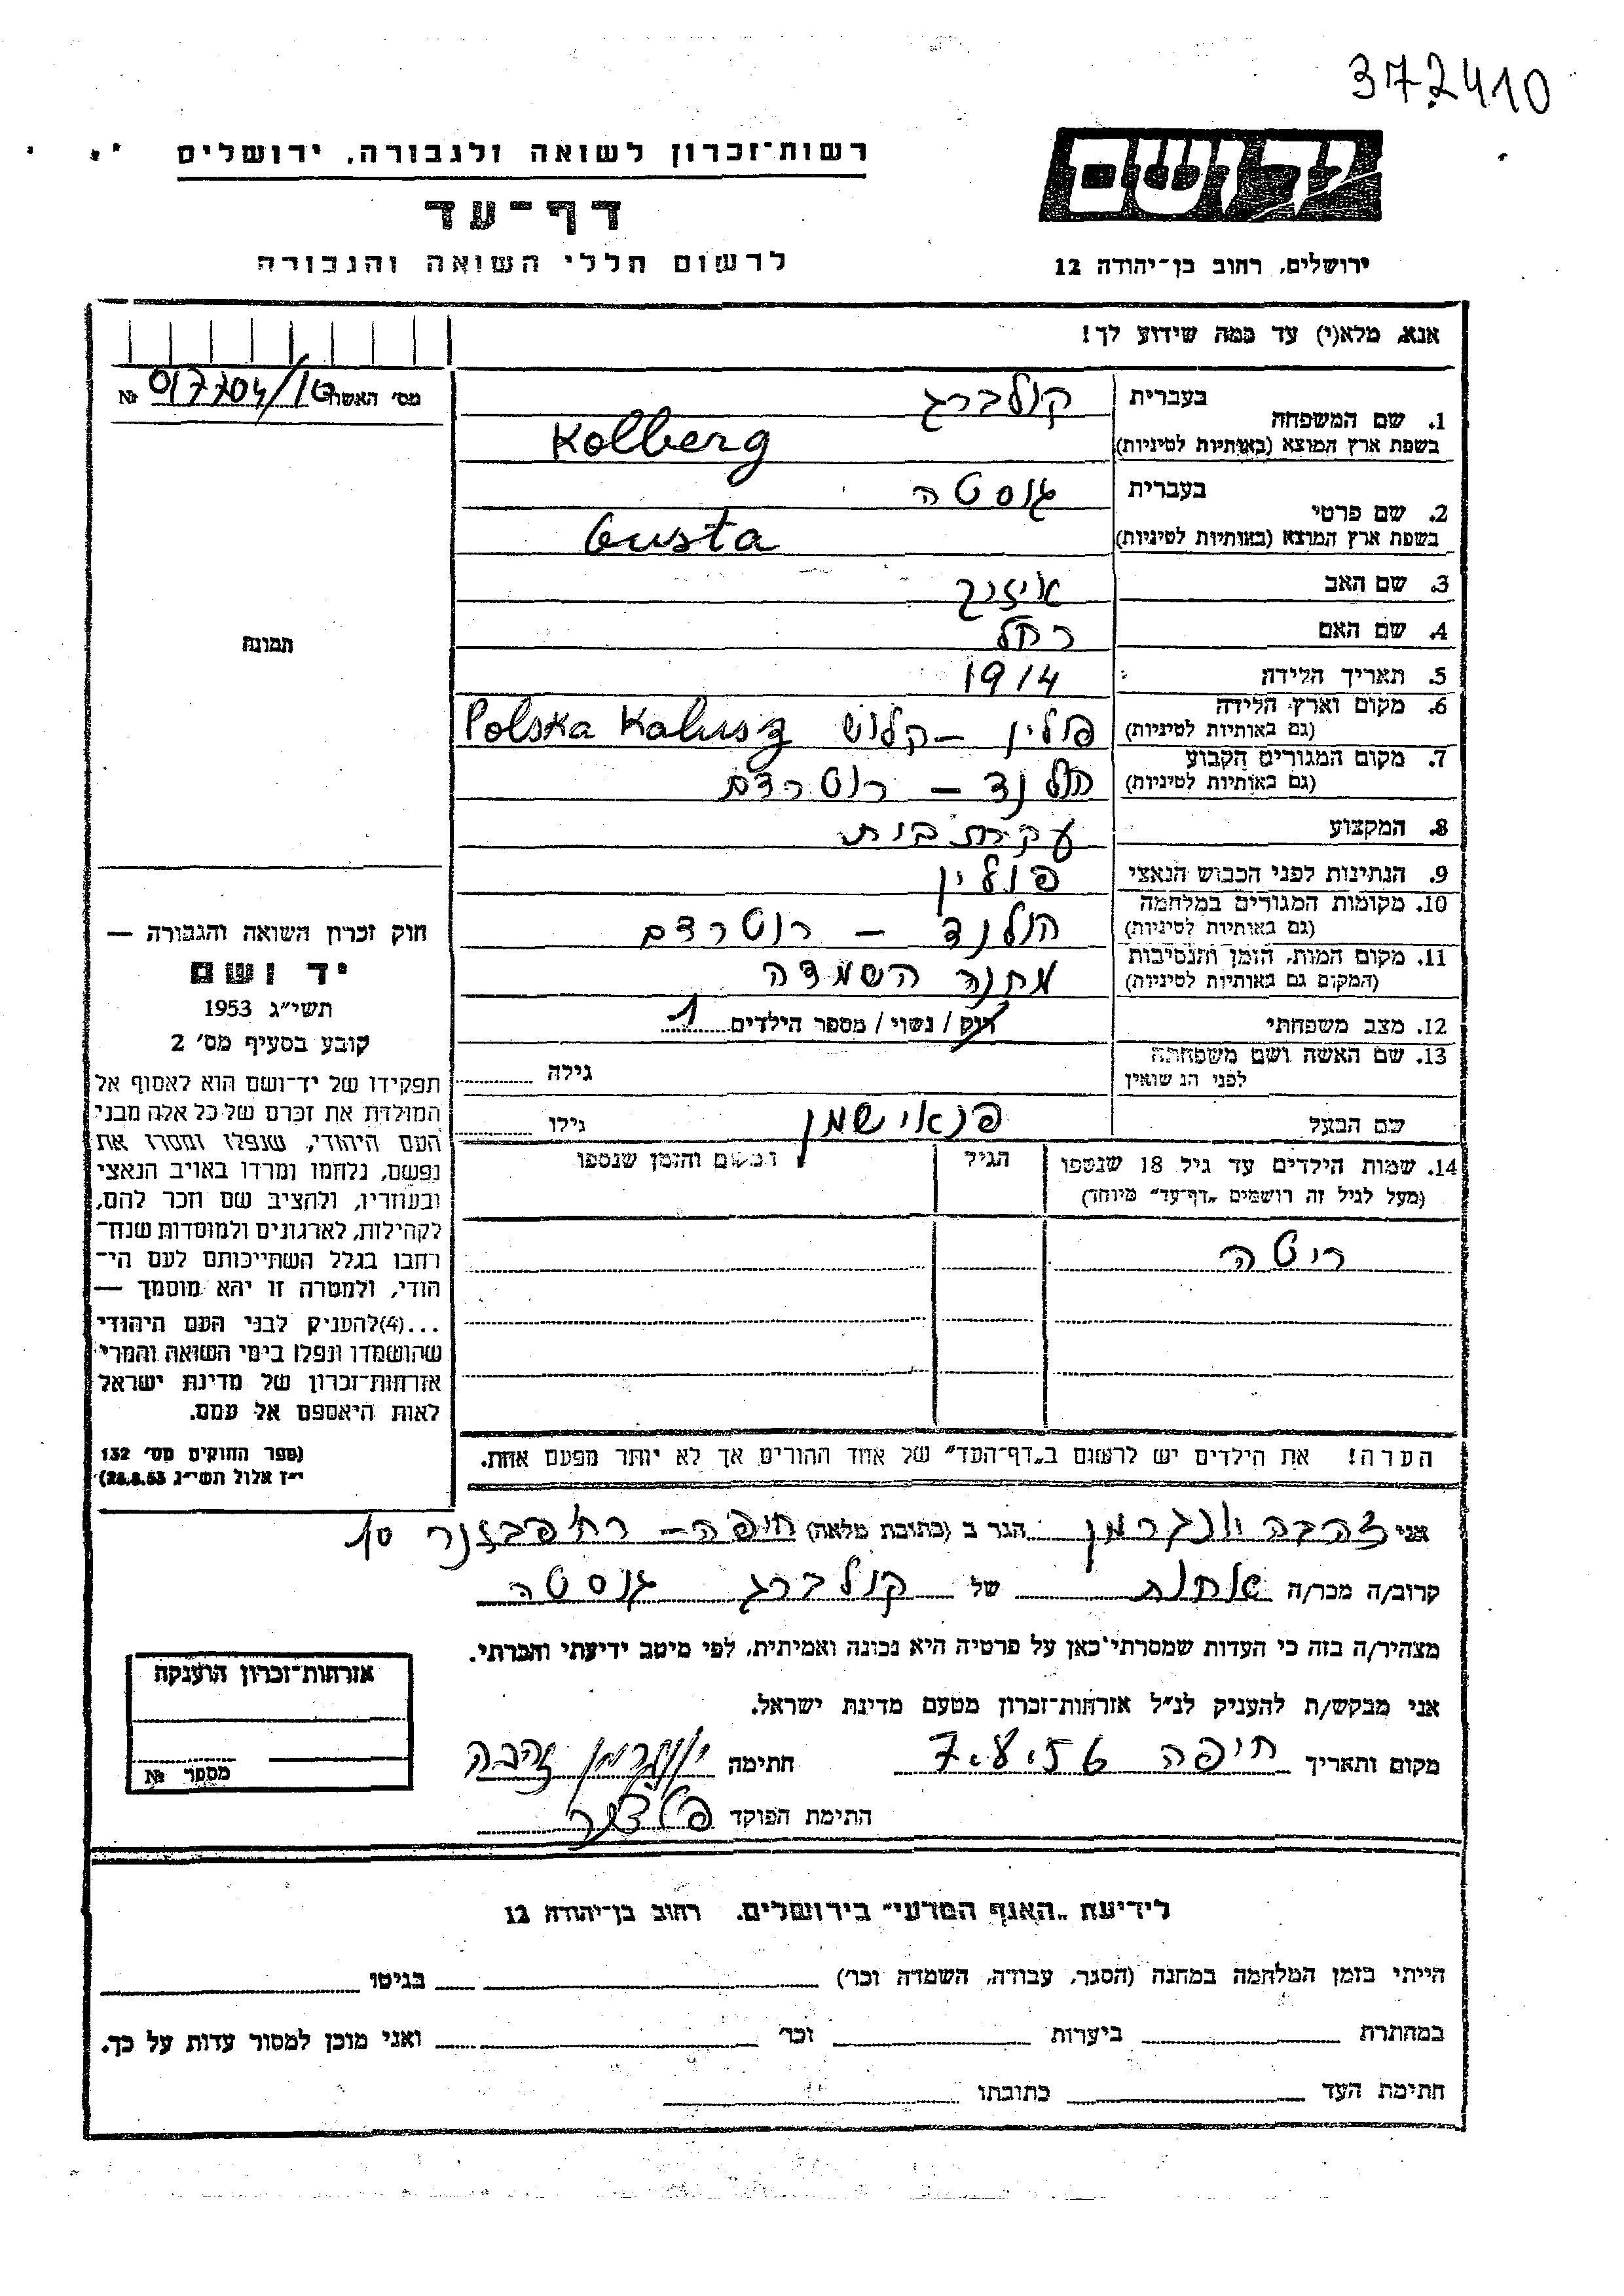 372410
רשות־זכרון לשואה ולגבורה, ירושלים
דף־עד
לרשום חללי השואה והגבורה
יד ושם
ירושלים, רחוב בן־יהודה 12
אנא, מלא(י) עד כמה שידוע לך!
מס' האשה 017704/10 №
1. שם המשפחה בעברית קולברג
בשפת ארץ המוצא (באותיות לטיניות) Kolberg
2. שם פרטי בעברית גוסטה
בשפת ארץ המוצא (באותיות לטיניות) Gusta
3. שם האב אייזיק
4. שם האם רחל
5. תאריך הלידה 1914
6. מקום וארץ הלידה (גם באותיות לטיניות) פולין – קלוש Polska Kalusz
7. מקום המגורים הקבוע (גם באותיות לטיניות) הולנד – רוטרדם
8. המקצוע עקרת בית
9. הנתינות לפני הכבוש הנאצי פולין
10. מקומות המגורים במלחמה (גם באותיות לטיניות) הולנד – רוטרדם
11. מקום המות, הזמן והנסיבות (המקום גם באותיות לטיניות) מחנה השמדה
12. מצב משפחתי רוק / נשוי / מספר הילדים 1
13. שם האשה ושם משפחתה לפני הנישואין גילה
שם הבעל גילו
14. שמות הילדים עד גיל 18 שנספו
(מעל לגיל זה רושמים „דף־עד” מיוחד)
הגיל
המקום והזמן שנספו
ריטה
הערה! את הילדים יש לרשום ב„דף־העד” של אחד ההורים אך לא יותר מפעם אחת.
תמונה
חוק זכרון השואה והגבורה —
יד ושם
תשי״ג 1953
קובע בסעיף מס' 2
תפקידו של יד־ושם הוא לאסוף אל
המולדת את זכרם של כל אלה מבני
העם היהודי, שנפלו ומסרו את
נפשם, נלחמו ומרדו באויב הנאצי
ובעוזריו, ולהציב שם וזכר להם,
לקהילות, לארגונים ולמוסדות שנח־
רבו בגלל השתייכותם לעם הי־
הודי, ולמטרה זו יהא מוסמך —
...(4)להעניק לבני העם היהודי
שהושמדו ונפלו בימי השואה והמרי
אזרחות־זכרון של מדינת ישראל
לאות היאספם אל עמם.
(ספר החוקים מס' 132
י״ז אלול תשי״ג 28.8.53)
אני זהבה וונגרמן הגר ב (כתובת מלאה) חיפה – 10
קרוב/ה מכר/ה של קולברג גוסטה
מצהיר/ה בזה כי העדות שמסרתי כאן על פרטיה היא נכונה ואמיתית, לפי מיטב ידיעתי והכרתי.
אני מבקש/ת להעניק לנ״ל אזרחות־זכרון מטעם מדינת ישראל.
מקום ותאריך חיפה 7.8.56 חתימה וונגרמן זהבה
חתימת הפוקד
אזרחות־זכרון הוענקה
מספר №
לידיעת „האגף המדעי” בירושלים, רחוב בן־יהודה 12
הייתי בזמן המלחמה במחנה (הסגר, עבודה, השמדה וכו') בגיטו
במחתרת ביערות וכו' ואני מוכן למסור עדות על כך.
חתימת העד כתובתו